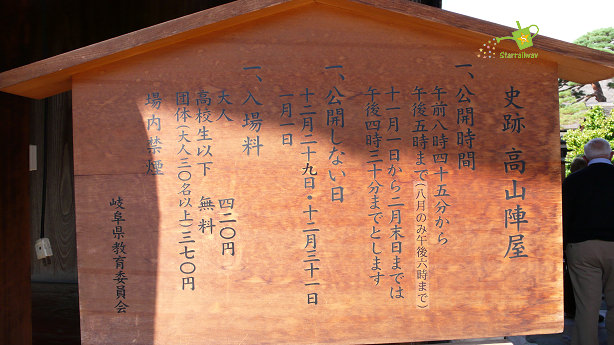 史跡 高山陣屋
一、公開時間
午前八時四十五分から
午後五時まで(八月のみ午後六時まで)
十一月一日から二月末日までは
午後四時三十分までとします
一、公開しない日
十二月二十九日・十二月三十一日
一月一日
一、入場料
大人 四二〇円
高校生以下 無料
団体(大人三〇名以上)三七〇円
場内禁煙
岐阜県教育委員会
Starrailway